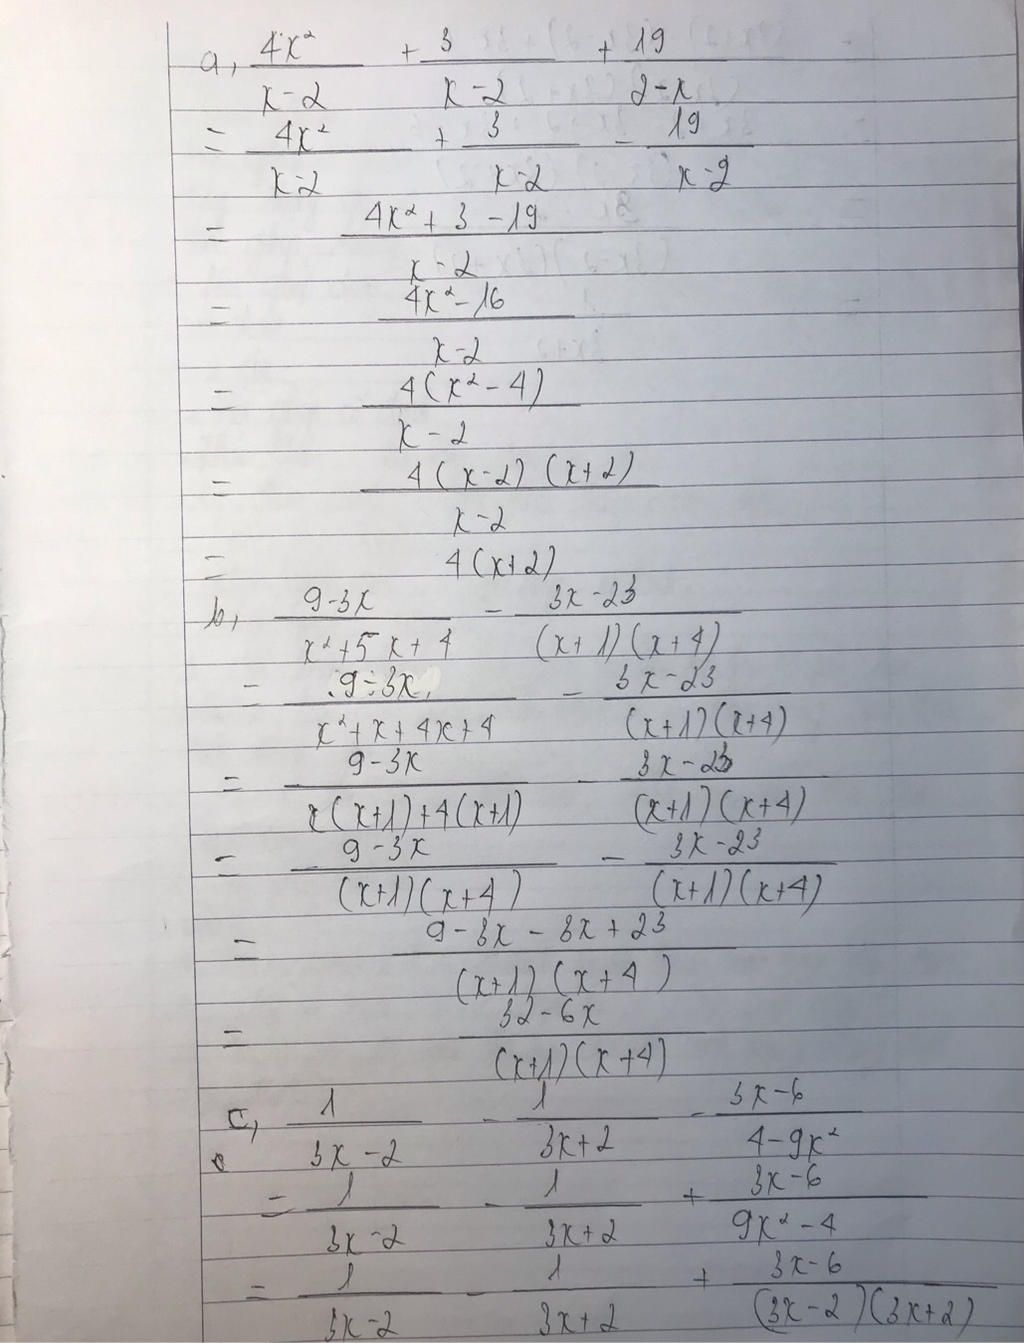 a, 4x²/(x-2) + 3/(x-2) + 19/(2-x)
= 4x²/(x-2) + 3/(x-2) - 19/(x-2)
= (4x² + 3 - 19)/(x-2)
= (4x² - 16)/(x-2)
= 4(x² - 4)/(x-2)
= 4(x-2)(x+2)/(x-2)
= 4(x+2)
b, (9-3x)/(x²+5x+4) - (3x-23)/((x+1)(x+4))
= (9-3x)/(x²+x+4x+4) - (3x-23)/((x+1)(x+4))
= (9-3x)/(x(x+1)+4(x+1)) - (3x-23)/((x+1)(x+4))
= (9-3x)/((x+1)(x+4)) - (3x-23)/((x+1)(x+4))
= (9-3x-3x+23)/((x+1)(x+4))
= (32-6x)/((x+1)(x+4))
c, 1/(3x-2) - 1/(3x+2) - (3x-6)/(4-9x²)
= 1/(3x-2) - 1/(3x+2) + (3x-6)/(9x²-4)
= 1/(3x-2) - 1/(3x+2) + (3x-6)/((3x-2)(3x+2))